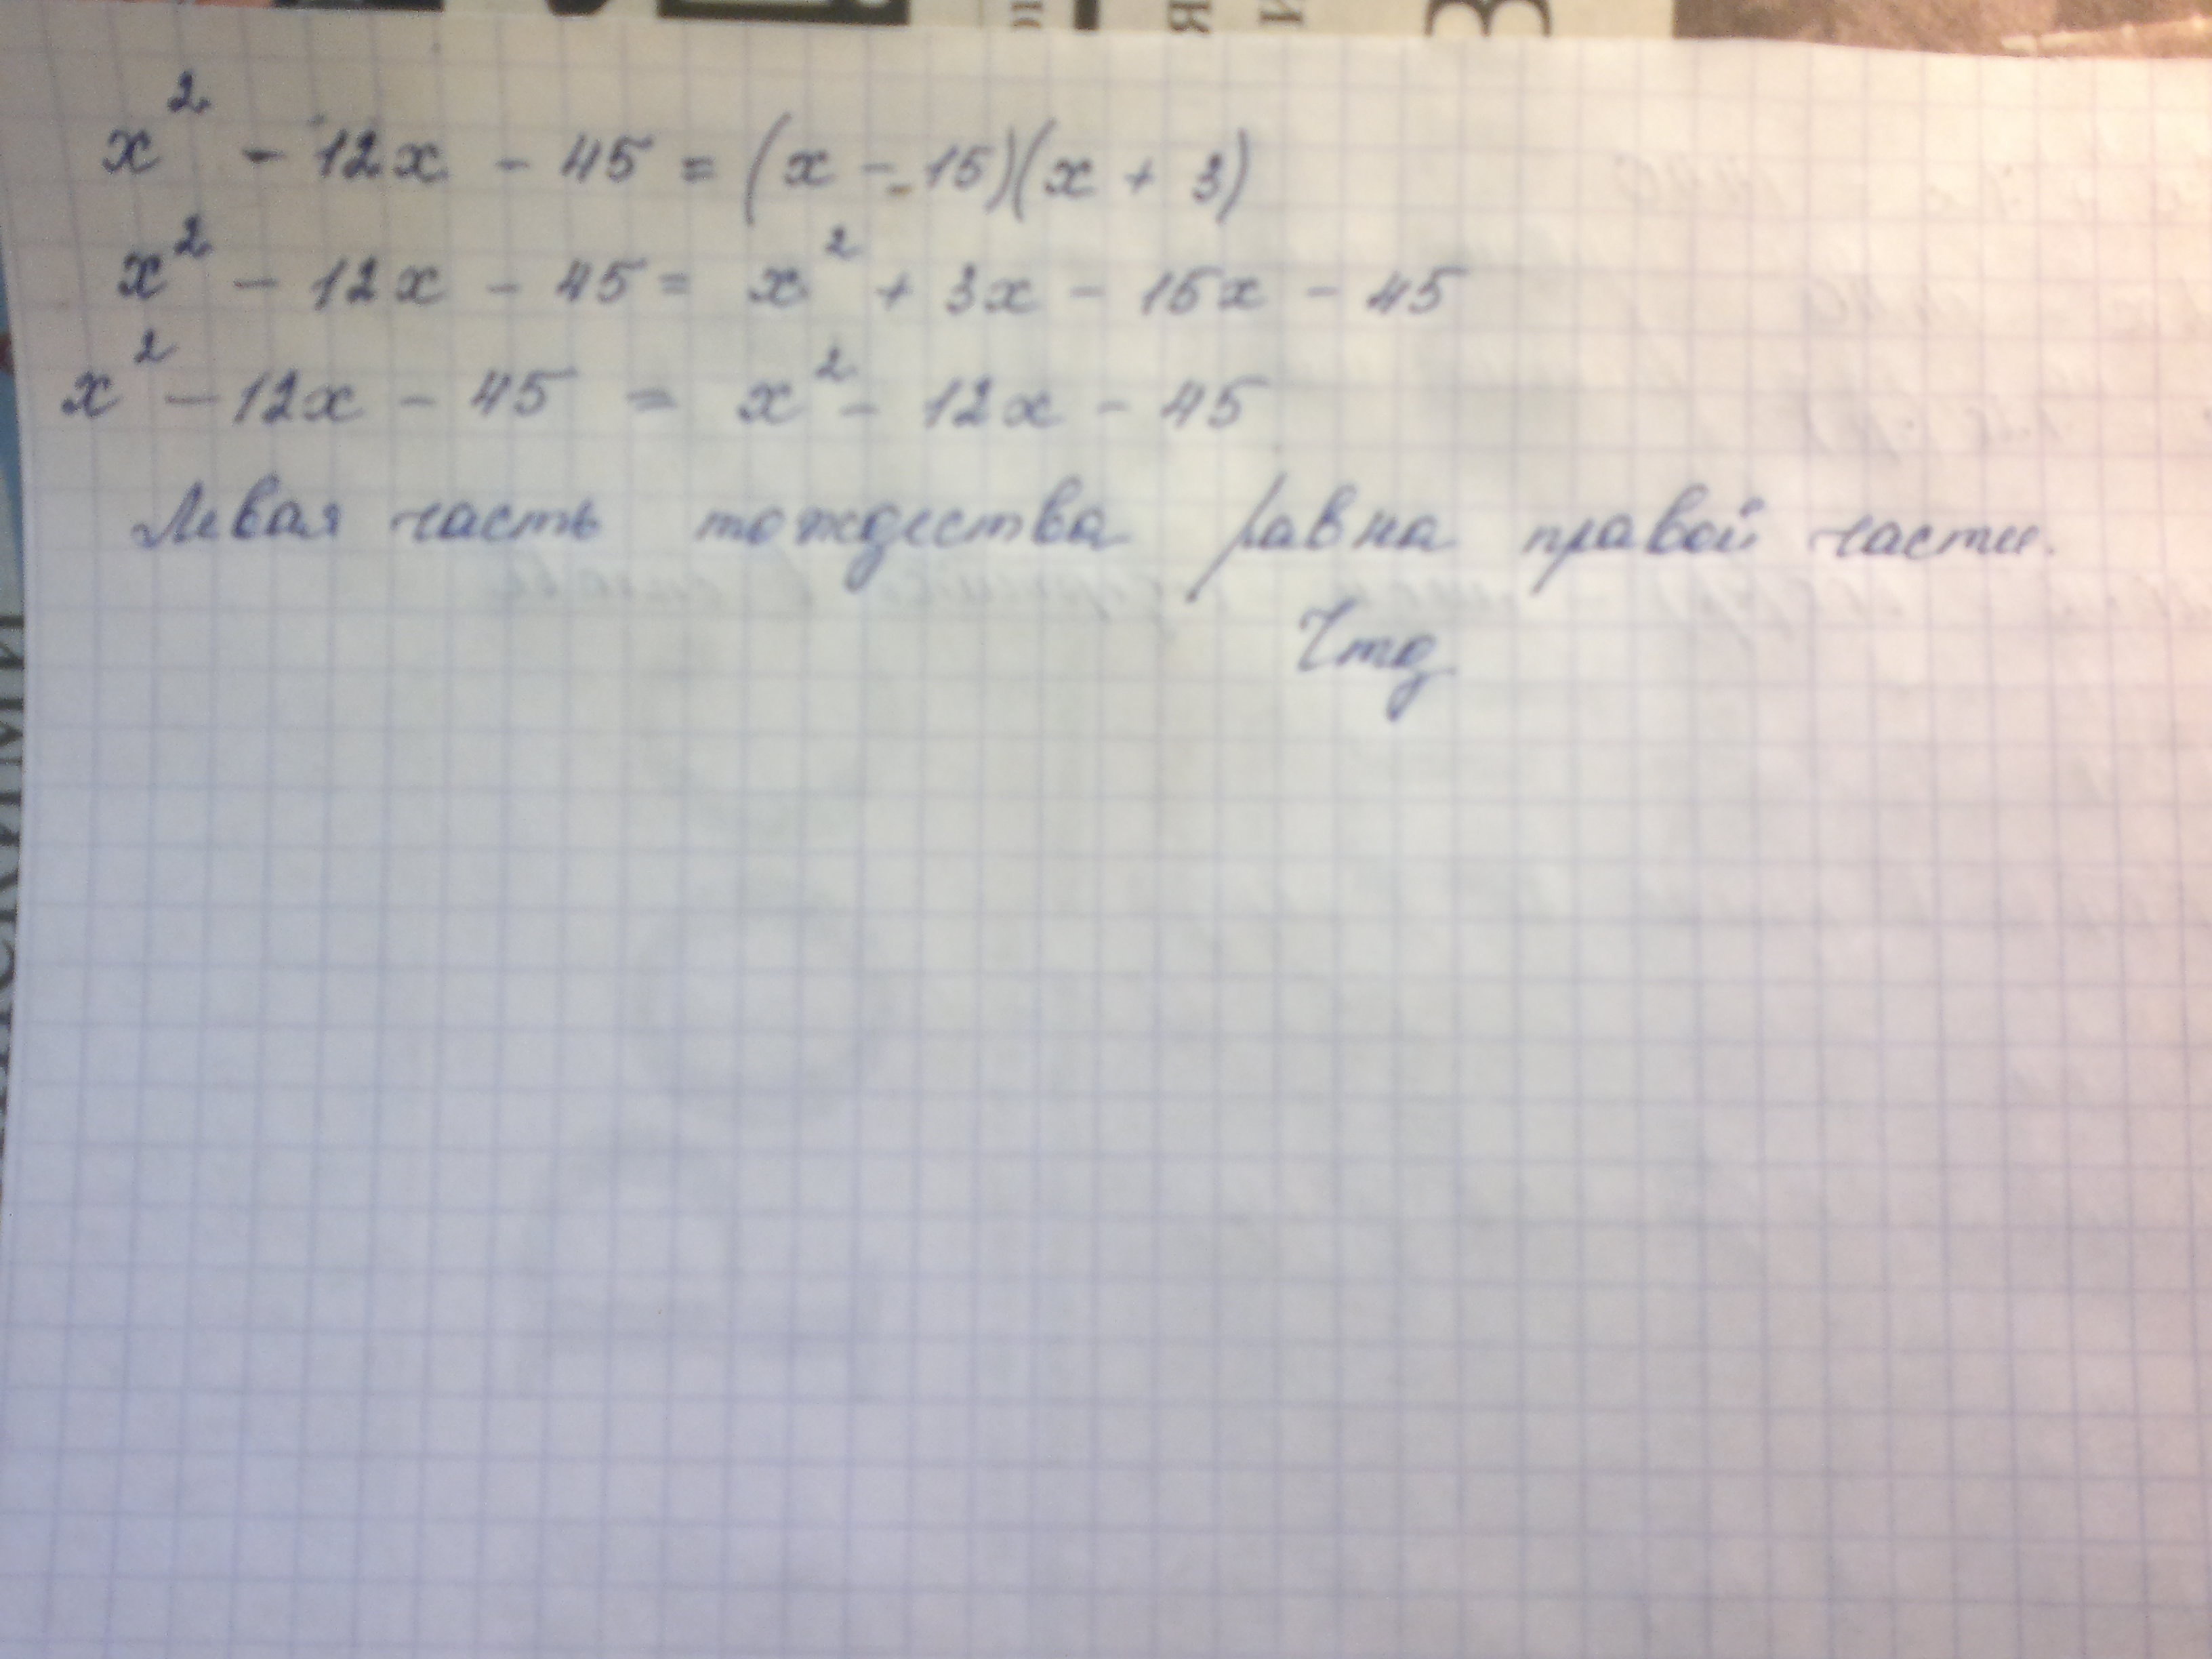 x² - 12x - 45 = (x - 15)(x + 3)
x² - 12x - 45 = x² + 3x - 15x - 45
x² - 12x - 45 = x² - 12x - 45
Левая часть тождества равна правой части.
Чтд